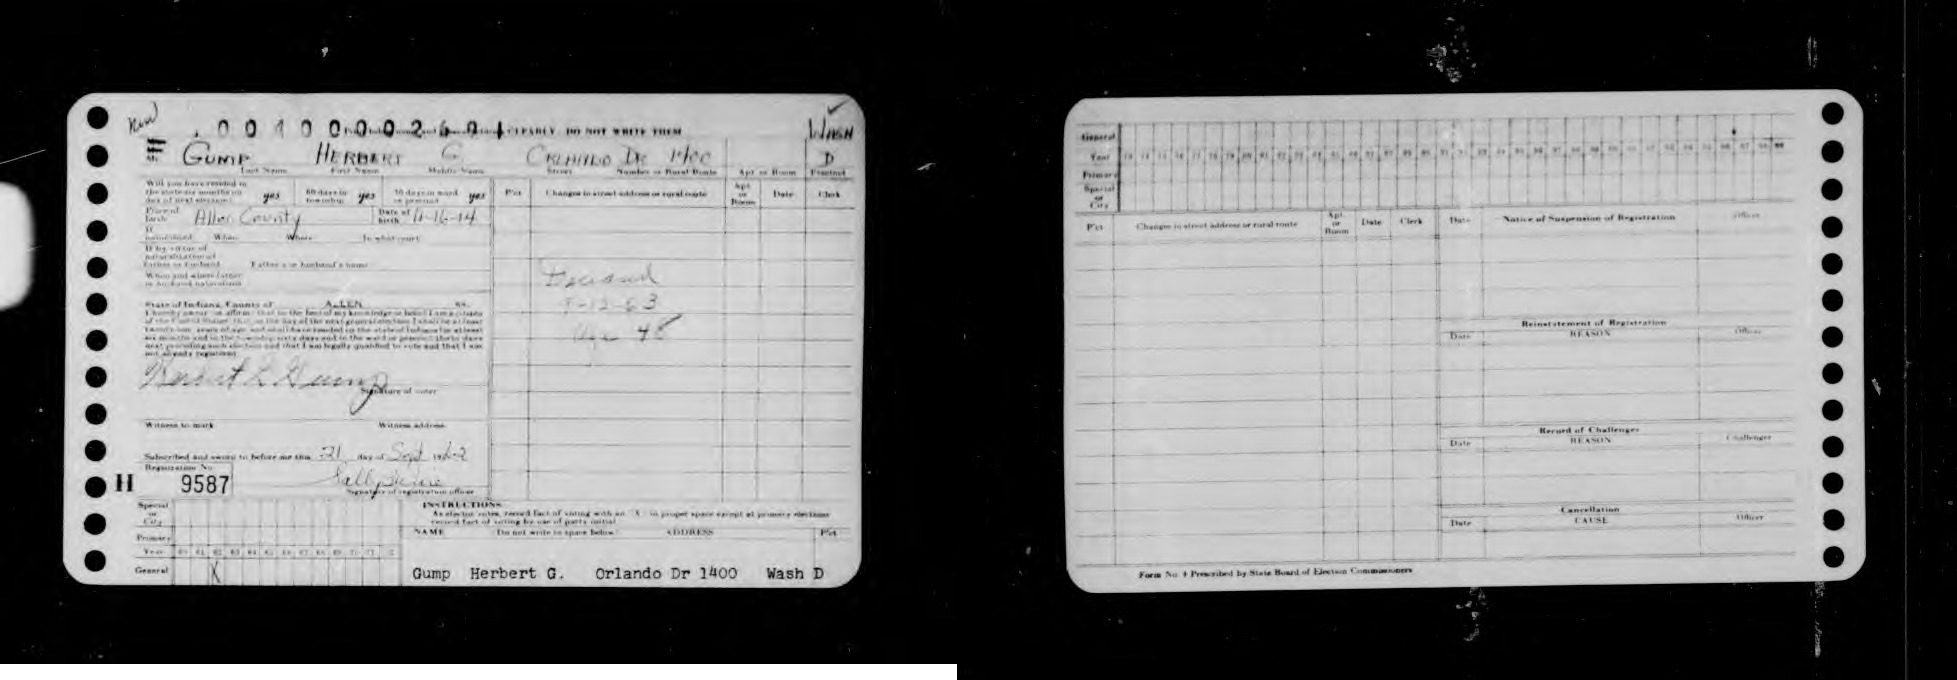 New
00100002601 CLEARLY. DO NOT WRITE THEM
WASH
Mr. GUMP HERBERT G. ORLANDO DR 1400 D
Last Name First Name Middle Name Street Number or Rural Route Apt. or Room Precinct
Will you have resided in the state six months on day of next election? yes 60 days in township yes 30 days in ward or precinct yes
Place of birth Allen County Date of birth 11-16-14
If naturalized When Where In what court
If by virtue of naturalization of father or husband Father's or husband's name
When and where father or husband naturalized
State of Indiana, County of ALLEN ss.
I hereby swear (or affirm) that to the best of my knowledge or belief I am a citizen
of the United States; that on the day of the next general election I shall be at least
twenty-one years of age and shall have resided in the state of Indiana for at least
six months and in the township sixty days and in the ward or precinct thirty days
next preceding such election and that I am legally qualified to vote and that I am
not already registered.
Herbert G Gump
Signature of voter
Witness to mark Witness address
Subscribed and sworn to before me this 21 day of Sept 1962
Registration No.
H 9587
Sally
Signature of registration officer
P'ct Changes in street address or rural route Apt. or Room Date Clerk
Deceased
-12-63
Age 48
Special or City
Primary
Year 60 61 62 63 64 65 66 67 68 69 70 71 2
General X
INSTRUCTIONS
As elector votes, record fact of voting with an "X" in proper space except at primary elections
record fact of voting by use of party initial.
NAME (Do not write in space below) ADDRESS P'ct
Gump Herbert G. Orlando Dr 1400 Wash D
General
Year
Primary
Special or City
P'ct Changes in street address or rural route Apt. or Room Date Clerk
Date Notice of Suspension of Registration Officer
Reinstatement of Registration
Date REASON Officer
Record of Challenges
Date REASON Challenger
Cancellation
Date CAUSE Officer
Form No. 4 Prescribed by State Board of Election Commissioners